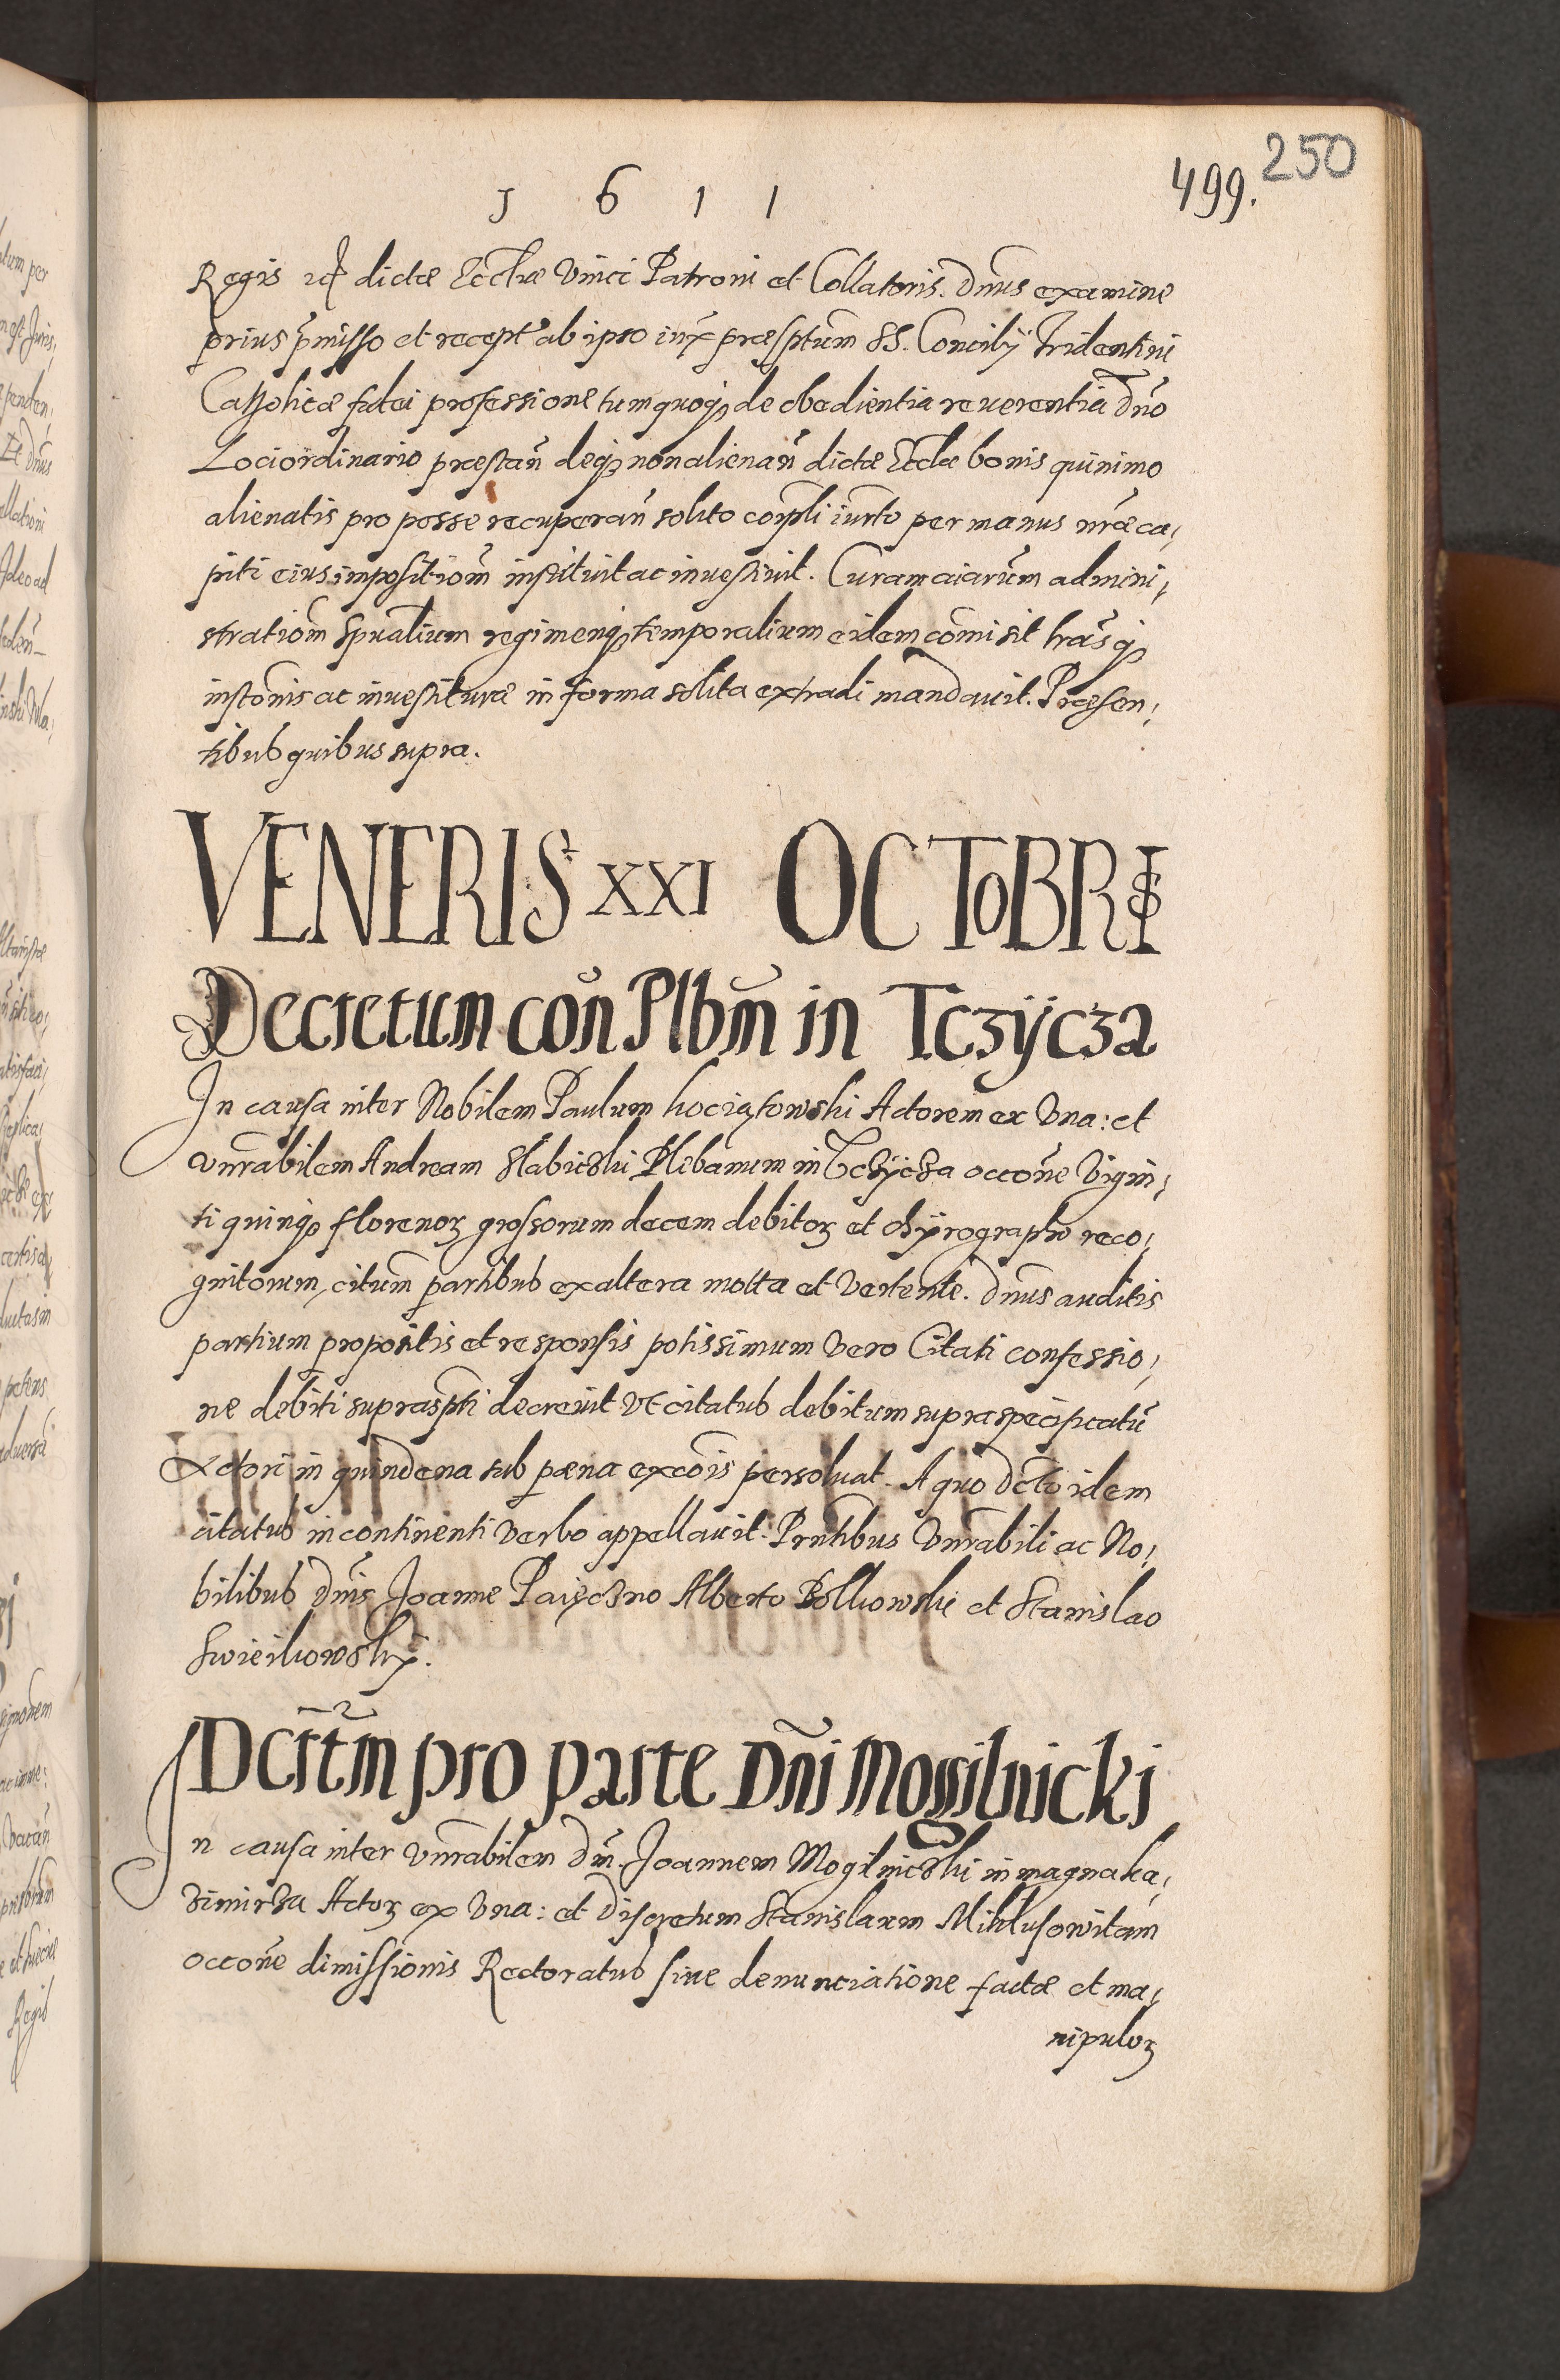 1 6 1 1
499. 250
Regis dictæ Eccl̃iæ Vnici Patroni et Collatoris. Dñus examine
prius p̃misso et recept' ab ipso iux̃ præscptũm SS. Concilÿ Tridentini
Catholicæ fidei professione tum quoq; de obedientia reuerentia Dño
Lociordinario præstañ deq; non alienañ dictæ Eccl̃iæ bonis quinimo
alienatis pro posse recuperañ solito corp̃li iurto per manus nr̃æ ca,
piti eius impositioñm instituit ac inuestiuit. Curam aiarũm admini,
stratioñm Spualium regimenq; temporalium eidem com̃isit Lrãs q;
instonis ac inuestituræ in forma solita extradi mandauit. Præsen,
tibus quibus supra.
VENERIS XXI OCTOBRIS
Decretum coñ Plbm̃ in Tczÿcza
In causa inter Nobilem Paulum Kociątowski Actorem ex Vna: et
Vnr̃abilem Andream Slabicski Plebanum in Tczÿcza occoñe Vigin,
ti quinq; florenoꝝ grossorum decem debitoꝝ et chÿrographo reco,
gnitorum, citum partibus ex altera mota et Vertente. Dñus auditis
partium propositis et responsis potissimum Vero Citati confessio,
ne debiti suprasp̃ti decreuit Vt citatus debitum supraspecificatũ
Actori in quindena sub pæna excõis persoluat. A quo dcto idem
citatus incontinenti Verbo appellauit. Prntibus Vnr̃abili ac No,
bilibus Dñis Joanne Paięczno Alberto Polkowski et Stanislao
Swieikowskÿ.
Dcrt̃m pro parte Dñi Mogilnicki
In causa inter Vnr̃abilem Dñ. Joannem Mogilnicski in magna Ka,
zimirza Actoꝝ ex Vna: et Discretum Stanislaum Miklusowitam
occoñe dimissionis Rectoratus siue denunciatione factæ et ma,
nipuloꝝ